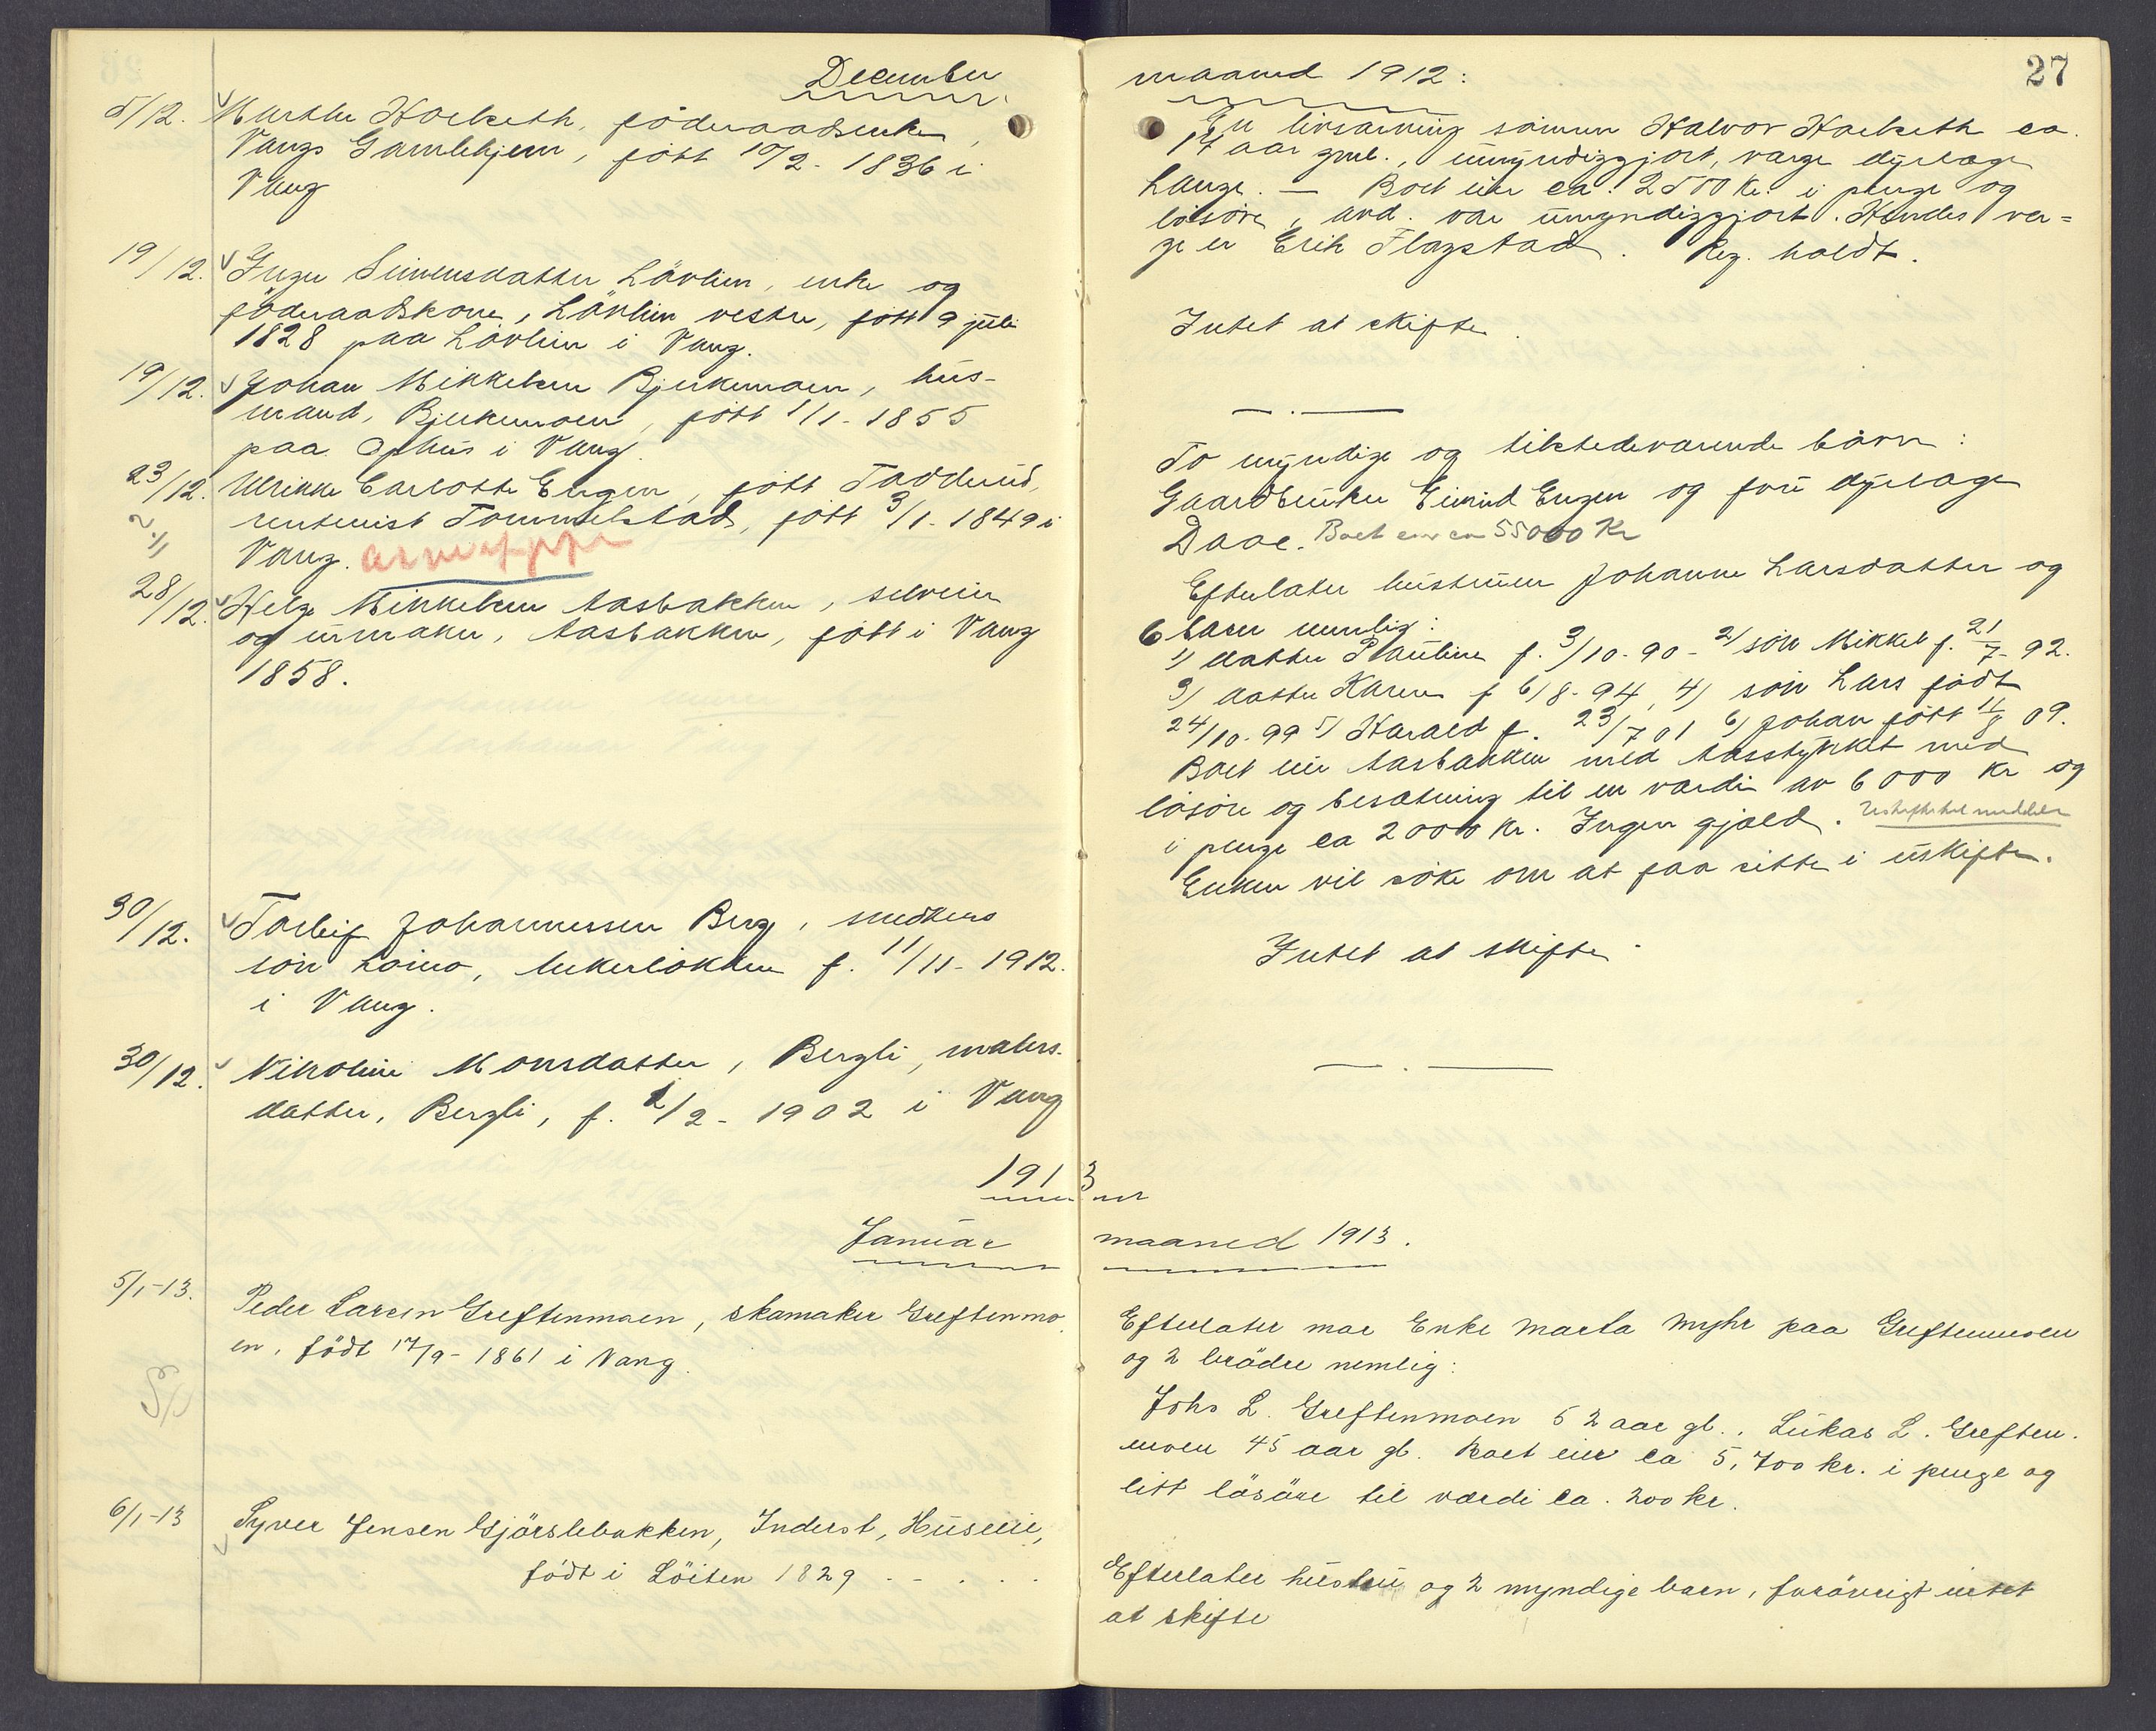 27
December
5/12. Marthe Hoelseth, föderaadsenke,
Vangs Gamlehjem, født 10/2 - 1836 i
Vang
19/12. Inger Simensdatter Lövlien, enke og
föderaadskone, Lövlien vestre, født 9 juli
1828 paa Lövlien i Vang.
19/12. Johan Mikkelsen Bjerkemoen, hus-
mand, Bjerkemoen, født 1/1 - 1855
paa Ophus i Vang.
23/12. Ulrikke Carlotte Engen, født Tadderud,
rentenist Tommelstad, født 3/1 - 1849 i
Vang.
28/12. Helge Mikkelsen Aasbakken, selveier
og urmaker, Aasbakken, født i Vang
1858.
30/12. Torleif Johannessen Berg, snedkers
sön , f. 11/11 - 1912.
i Vang.
30/12. Nikoline Monsdatter, Bergli, malers-
datter, Bergli, f. 2/2 - 1902 i Vang
maaned 1912:
En livsarving sönnen Halvor Hoelseth ca.
aar gml., umyndiggjort, verge dyrlæge
Lange. — Boet eier ca. 2500 Kr. i penge og
lösöre, avd. var umyndiggjort. Hendes ver=
ge er Erik Flagstad. Reg. holdt.
Intet at skifte.
— . —
To myndige og tilstedeværende börn:
Gaardbruker Eivind Engen og fru dyrlæge
Daae. Boet eier ca 55000 Kr
Efterlater hustruen Johanne Larsdatter og
6 barn nemlig:
1) datter Pauline f. 3/10 - 90 - 2) sön Mikkel f. 21/7 - 92.
3) datter Karen f 6/8 - 94, 4) sön Lars født
24/10 - 99 5) Harald f. 23/7 01 6) Johan født 11/8 09.
Boet eier Aasbakken med Aasstykket med
lösöre og besætning til en værdi av 6000 kr og
i penge ca 2000 Kr. Ingen gjæld.
Enken vil söke om at faa sitte i uskifte.
Intet at skifte.
— . —
1913
Januar maaned 1913.
5/1-13. Peder Larsen Greftenmoen, skomaker Greftenmo
en, født 17/9 - 1861 i Vang.
6/1-13 Syver Jensen Gjörslebakken, Inderst, Huseeie,
født i Löiten 1829 - - . . .
Efterlater mor Enke Marta Myhr paa Greftenmoen
og 2 brödre nemlig:
Johs L. Greftenmoen 52 aar gl., Lukas L. Greften-
moen 45 aar gl. Boet eier ca 5,700 kr. i penge og
litt lösöre til værdi ca. 200 kr.
Efterlater hustru og 2 myndige barn, forövrigt intet
at skifte